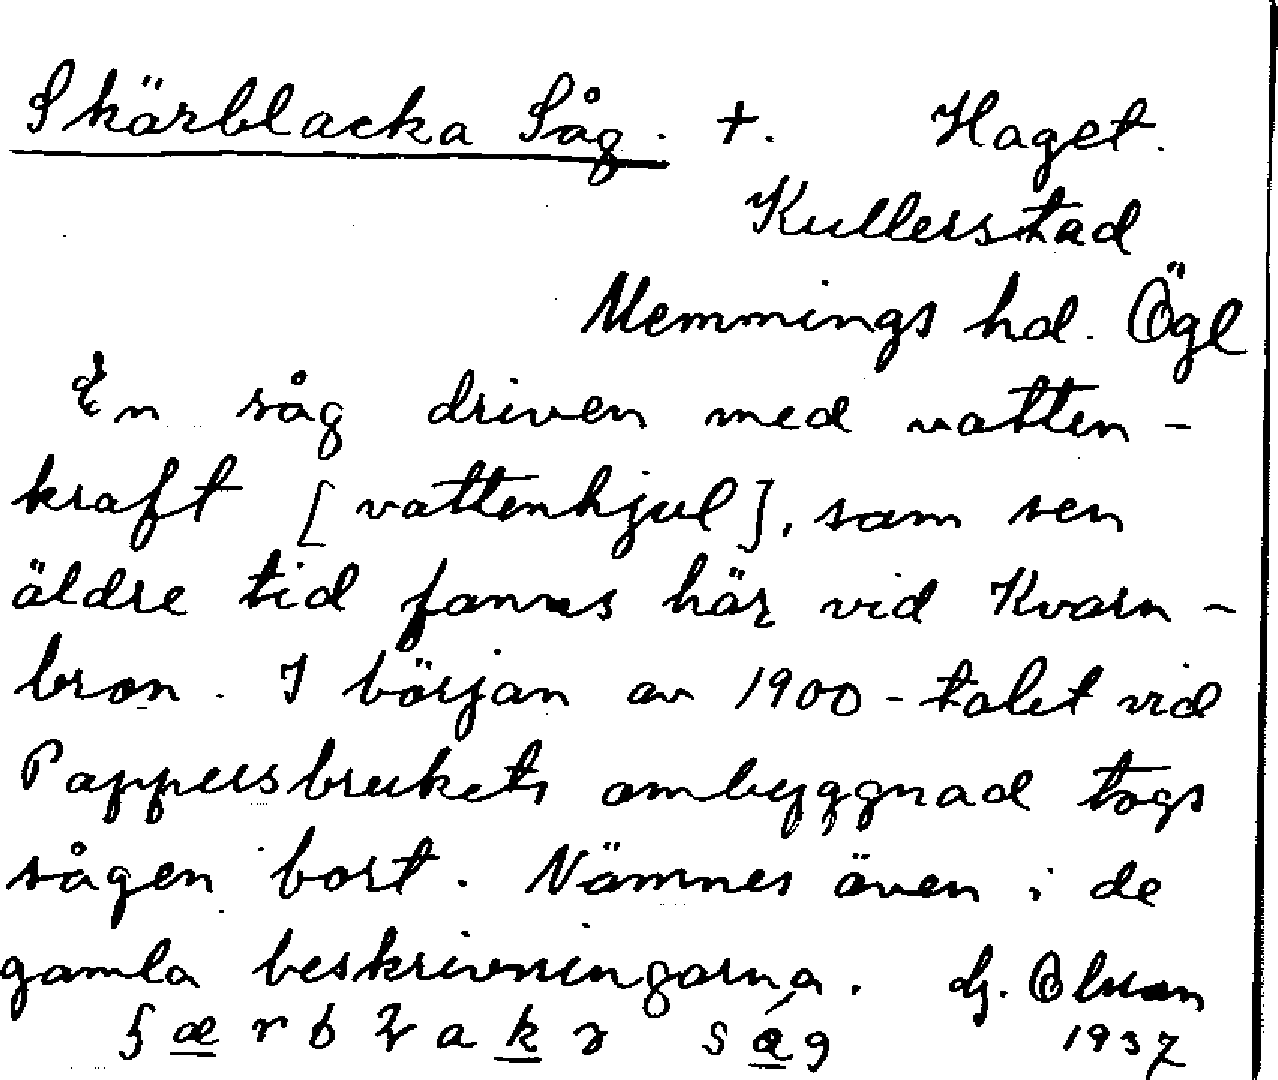 Skärblacka Såg. +. Haget.
Kullerstad
Memmings hd. Ögl
En såg driven med vatten-
kraft [vattenhjul], som sen
äldre tid fanns här vid Kvarn-
bron. I början av 1900-talet vid
Pappersbrukets ombyggnad togs
sågen bort. Nämnes även i de
gamla beskrivningarna. Olsson
1937